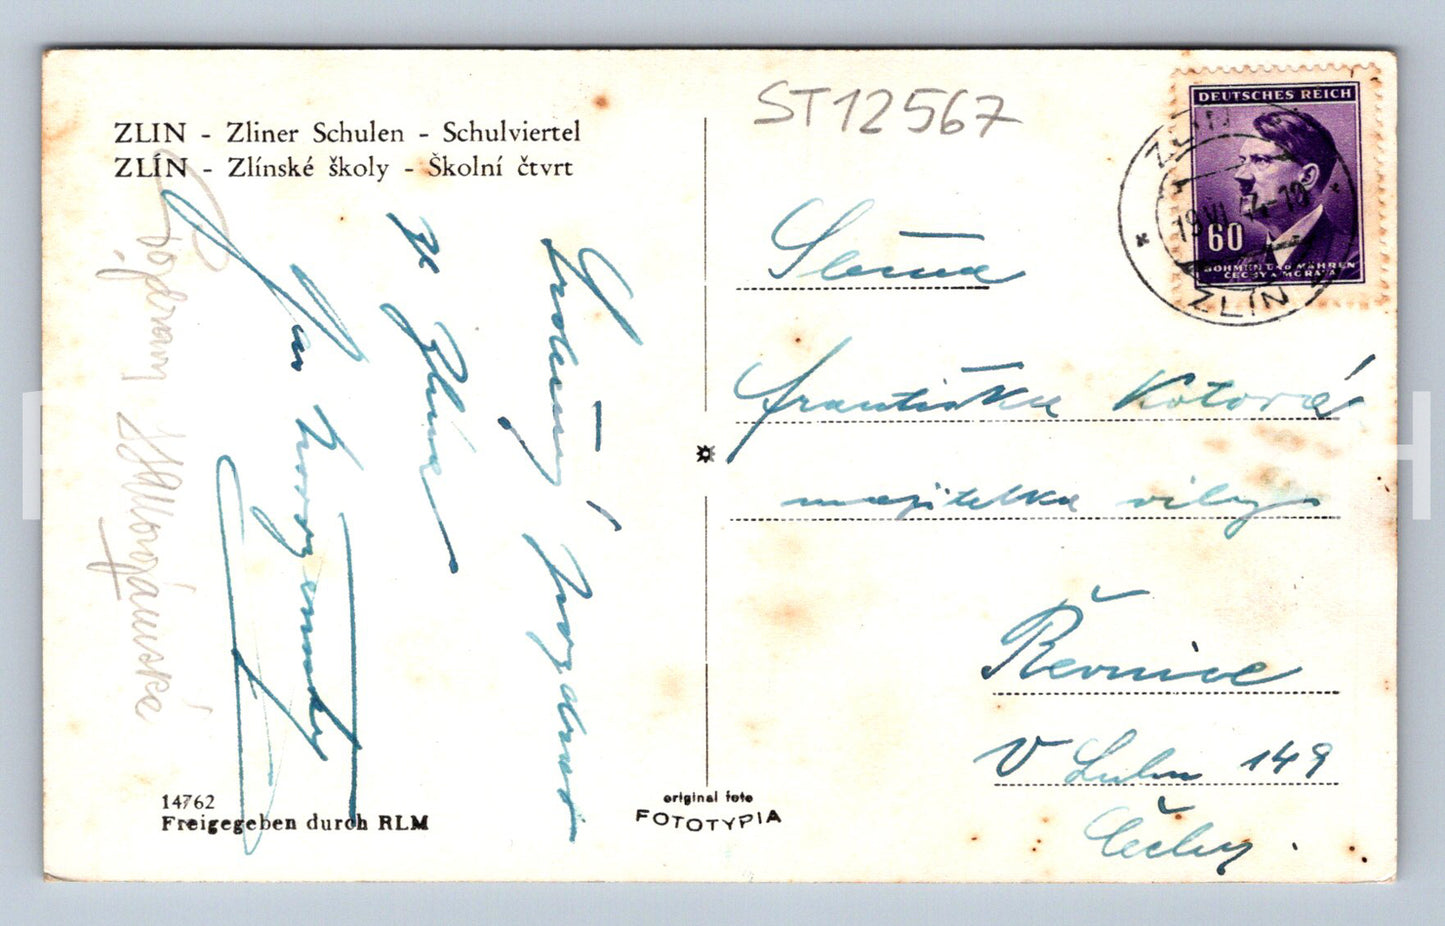 ZLIN - Zliner Schulen - Schulviertel
ZLÍN - Zlínské školy - Školní čtvrt
ST12567
DEUTSCHES REICH
60
BÖHMEN UND MÄHREN
ČECHY A MORAVA
ZLIN
19.VI.
ZLÍN
Srdečný pozdrav
ze Zlína
Jan
Pozdravy
Slečna
Františka Kotová
majitelka vily
Řevnice
V Luhu 149
Čechy.
14762
Freigegeben durch RLM
original foto
FOTOTYPIA